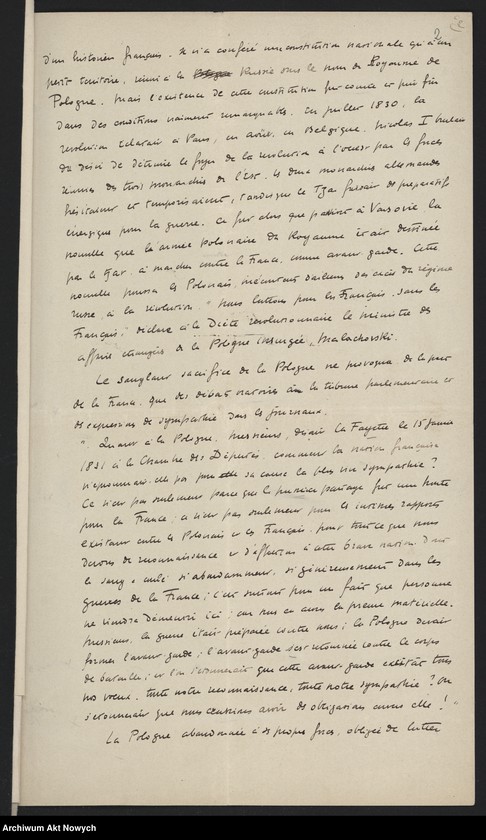 2
d'un historien français. Il n'a conféré une constitution nationale qu'à un
petit territoire, réuni à la Russie sous le nom de Royaume de
Pologne. Mais l'existence de cette constitution fut courte et prit fin
dans des conditions vraiment remarquables. En juillet 1830, la
révolution éclatait à Paris, en août, en Belgique. Nicolas I
du désir de détruire le foyer de la révolution à l'ouest par les forces
réunies des trois monarchies de l'Est. Les deux monarchies allemandes
hésitaient et temporisaient, tandis que le Tzar faisait des préparatifs
énergiques pour la guerre. Ce fut alors que parvint à Varsovie la
nouvelle que l'armée polonaise du Royaume était destinée
par le tzar à marcher contre la France, comme avant garde. Cette
nouvelle poussa les Polonais, mécontents d'ailleurs des excès du régime
russe, à la révolution. "Nous luttons pour les Français, sans les
Français", déclare à la Diète révolutionnaire le ministre des
affaires étrangères de la Pologne insurgée, Malachovski.
Le sanglant sacrifice de la Pologne ne provoqua de la part
de la France que des débats oratoires à la tribune parlementaire et
des expressions de sympathie dans les journaux.
"Quant à la Pologne, messieurs, disait La Fayette le 15 janvier
1831 à la Chambre des Députés, comment la nation française
n'éprouverait-elle pas pour sa cause la plus vive sympathie?
Ce n'est pas seulement parce que le premier partage fut une honte
pour la France; ce n'est pas seulement pour les intimes rapports
existant entre les Polonais et les Français, pour tout ce que nous
devons de reconnaissance et d'affection à cette brave nation dont
le sang a coulé si abondamment, si généreusement dans les
guerres de la France; c'est surtout pour un fait que personne
ne viendra démentir ici; car nous en avons la preuve matérielle.
Messieurs, la guerre était préparée contre nous; la Pologne devait
former l'avant garde; l'avant-garde s'est retournée contre le corps
de bataille; et l'on s'étonnerait que cette avant-garde excitât tous
nos voeux, toute notre reconnaissance, toute notre sympathie? On
s'étonnerait que nous eussions avoir des obligations envers elle!"
La Pologne abandonnée à ses propres forces, obligée de lutter
Archiwum Akt Nowych
www.szukajwarchiwach.pl